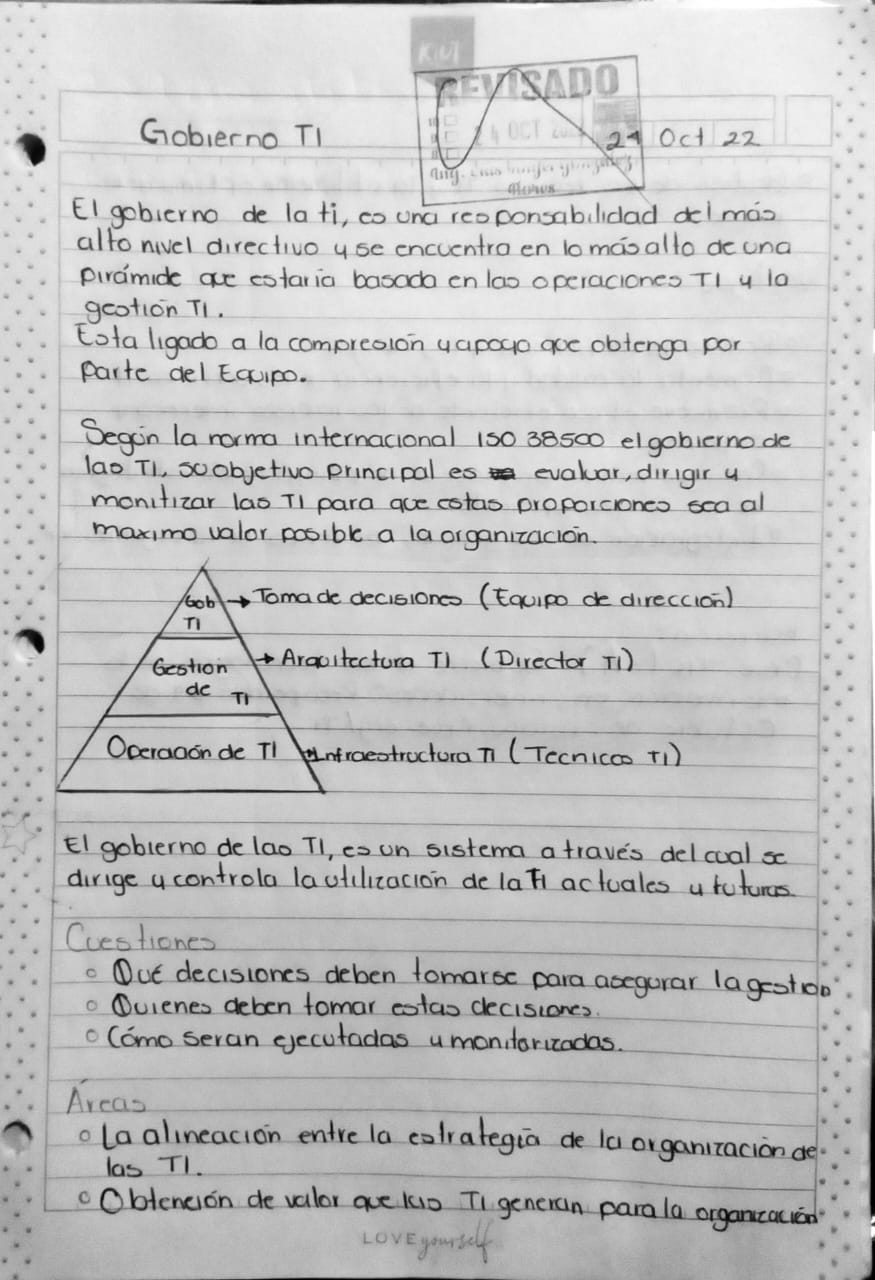 KIUT
REVISADO
24 OCT
Gobierno TI
24 Oct 22
El gobierno de la ti, es una responsabilidad del más
alto nivel directivo y se encuentra en lo más alto de una
pirámide que estaría basada en las operaciones TI y la
gestión TI.
Esta ligado a la compresión y apoyo que obtenga por
parte del Equipo.
Según la norma internacional ISO 38500 el gobierno de
las TI, su objetivo principal es evaluar, dirigir y
monitizar las TI para que estas proporciones sea al
maximo valor posible a la organización.
Gob TI → Toma de decisiones (Equipo de dirección)
Gestion de TI → Arquitectura TI (Director TI)
Operación de TI → Infraestructura TI (Tecnicos TI)
El gobierno de las TI, es un sistema a través del cual se
dirige y controla la utilización de la TI actuales y futuras.
Cuestiones
○ Qué decisiones deben tomarse para asegurar la gestion
○ Quienes deben tomar estas decisiones.
○ Cómo seran ejecutadas y monitorizadas.
Áreas
○ La alineación entre la estrategia de la organización de
las TI.
○ Obtención de valor que las TI generan para la organización
LOVE yourself